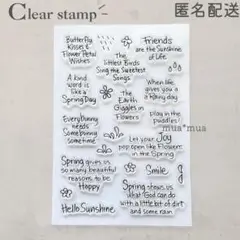 Clear stamp
匿名配送
Butterfly
Kisses &
Flower Petal
Wishes
Friends
are the Sunshine
of Life
The
Littlest Birds
Sing the Sweetest
Songs
A kind
word is
like a
Spring Day
When life
gives you a
rainy day
play in the
puddles
The
Earth
Giggles in
Flowers
mua*mua
Every bunny
needs
Some bunny
some time
Let your Joy
pop open like Flowers
in the Spring
Spring gives us
so many beautiful
reasons to be
Happy
Smile
Spring shows us
what God can do
with a little bit of dirt
and some rain
Hello Sunshine